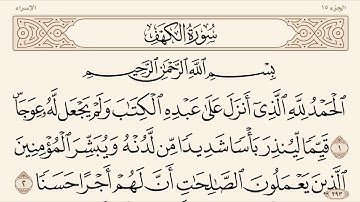 الجزء ١٥
الإسراء
سُورَةُ الكَهۡفِ
بِسۡمِ ٱللَّهِ ٱلرَّحۡمَٰنِ ٱلرَّحِيمِ
ٱلۡحَمۡدُ لِلَّهِ ٱلَّذِيٓ أَنزَلَ عَلَىٰ عَبۡدِهِ ٱلۡكِتَٰبَ وَلَمۡ يَجۡعَل لَّهُۥ عِوَجَاۜ
١ قَيِّمٗا لِّيُنذِرَ بَأۡسٗا شَدِيدٗا مِّن لَّدُنۡهُ وَيُبَشِّرَ ٱلۡمُؤۡمِنِينَ
ٱلَّذِينَ يَعۡمَلُونَ ٱلصَّٰلِحَٰتِ أَنَّ لَهُمۡ أَجۡرًا حَسَنٗا ٢
٢٩٣